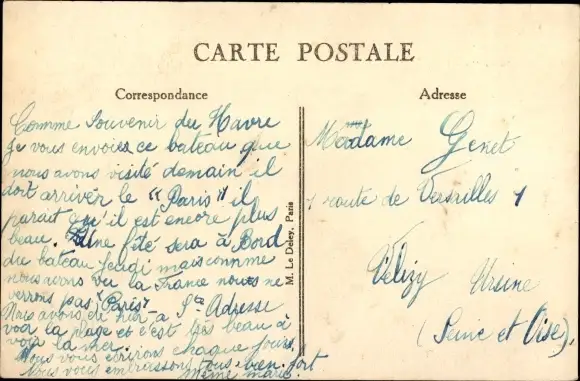 CARTE POSTALE
Correspondance
Comme souvenir du Havre
je vous envoie ce bateau que
nous avons visité demain il
doit arriver le "Paris" il
parait qu'il est encore plus
beau. Une fête sera à Bord
du bateau Jeudi mais comme
nous avons vu la France nous ne
verrons pas "Paris"
Nous avons à Ste Adresse
voir la plage et c'est très beau à
voir la mer.
Nous vous écrirons chaque jours.
Nous vous embrassons tous bien fort
M. Le Deley, Paris
Adresse
Madame Genet
1 route de Versailles 1
Vélizy Ursine
(Seine et Oise).